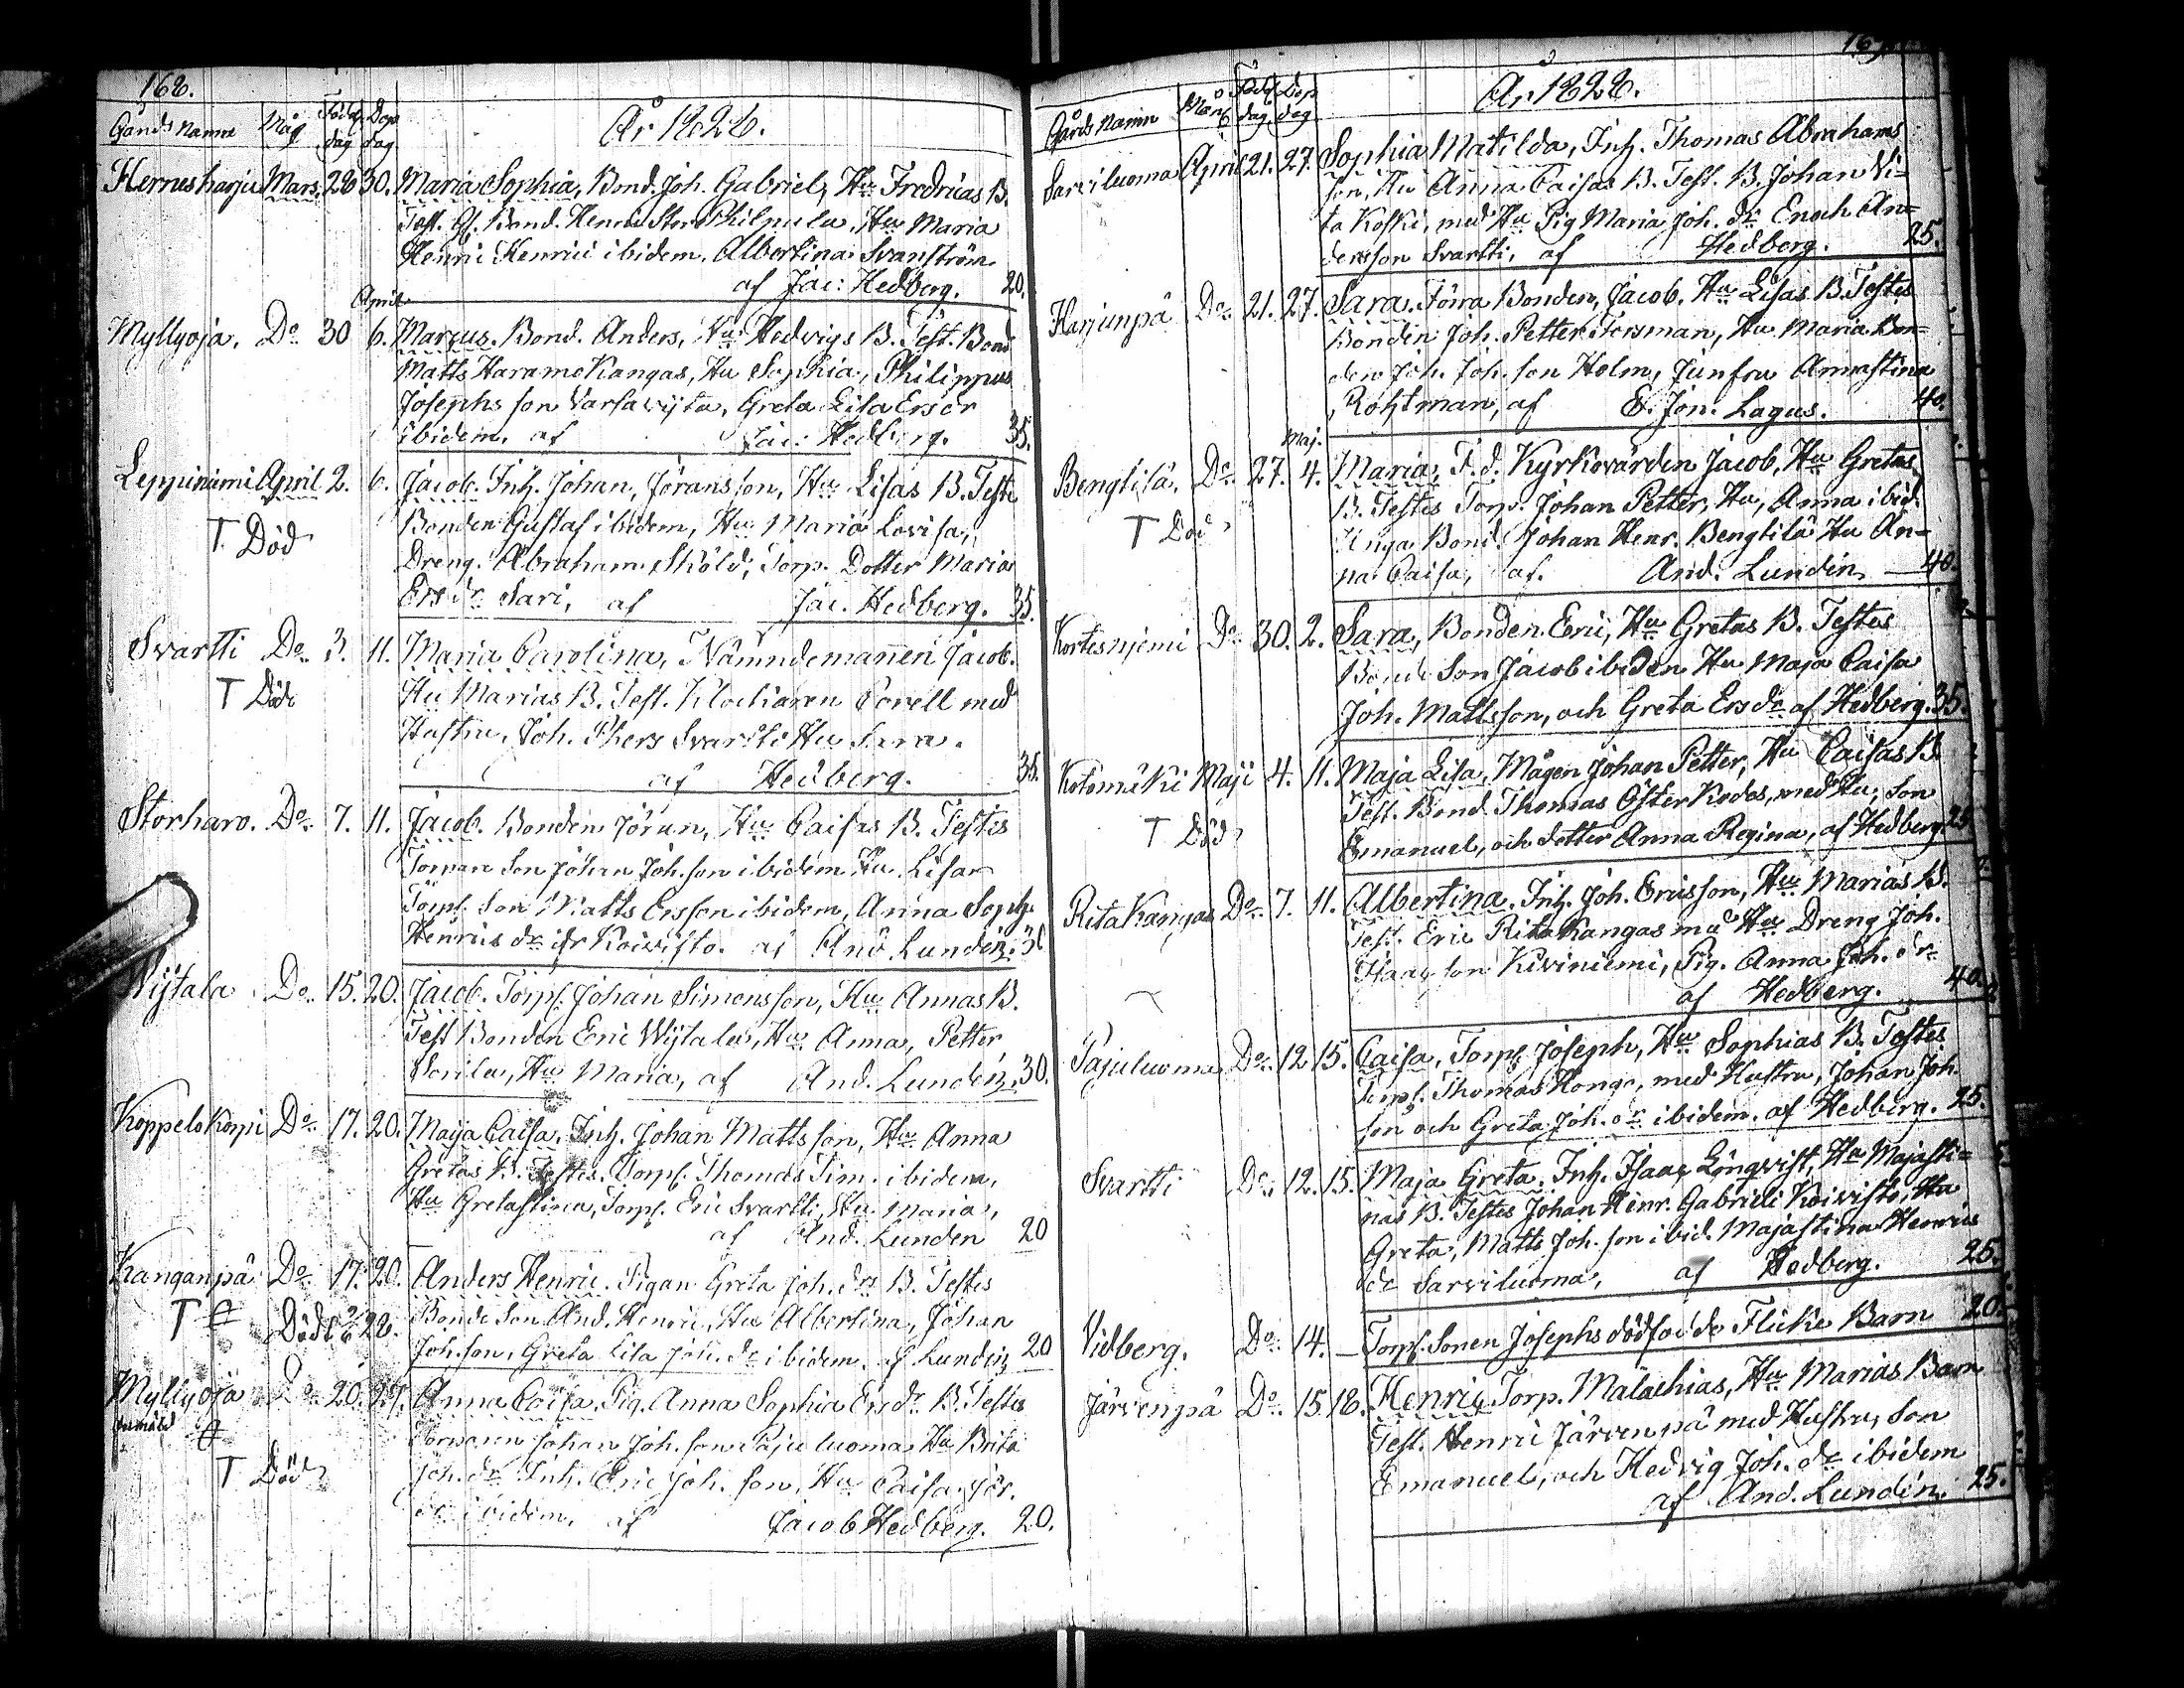 168.
Gårds namn Mån Föd. dag Dop dag År 1828.
Hernesharju Mars. 28 30. Maria Sophia, Bond. Joh. Gabriels, Hu Fredricas B.
Test. Bond. Henric Stor Philpula, Hu Maria
Henric Henrici ibidem, Albertina Svanström
af Jac: Hedberg. 20.
April
Myllyoja. Do 30 6. Marcus. Bond. Anders, Hu Hedvigs B. Test. Bond
Matts Haramokangas, Hu Sophia, Philippus
Josephs son Varsa, Greta Lisa Ersdr
ibidem, af Jac: Hedberg. 35.
Leppiniemi April 2. 6. Jacob. Inh. Johan, Jörans son, Hu Lisas B. Test
T Död Bonden Gustaf ibidem, Hu Maria Lovisa,
Dreng. Abraham Sköld, Torp. Dotter Maria
Ers dr Sari, af Jac. Hedberg. 35.
Svartti Do 3. 11. Maria Carolina, Nämndemannen Jacob.
T Död Hu Marias B. Test. Klockaren Corell med
Hustru, Joh. Phers Svartti Hu Sara.
af Hedberg. 35.
Storharo. Do 7. 11. Jacob. Bonden Jöran, Hu Caisas B. Testes
son Johan Joh. son ibidem Hu Lisa
Torp. Son Matts Ersson ibidem, Anna Soph.
Henrics dr Koivisto. af And Lundén.
Wijtala Do 15. 20. Jacob. Torp. Johan Simonsson, Hu Annas B.
Test Bonden Eric Wijtala, Hu Anna, Petter
Sorila, Hu Maria, af And. Lundén. 30.
Koppelokorpi Do 17. 20. Maja Caisa, Inh. Johan Mattsson, Hu Anna
Gretas B. Testes. Torp. Thomas Sim. ibidem,
Hu Gretastina, Torp. Eric Svartti, Hu Maria,
af And. Lunden 20
Kanganpä Do 17. 20. Anders Henric. Pigan Greta Joh. drs B. Testes
T Död 28. Bonde Son And. Henric, Hu Albertina, Johan
Joh. son, Greta Lisa Joh. dr ibidem. af Lundén 20
Myllyoja Do 20. 27. Anna Caisa, Pig. Anna Sophia Ers dr B. Testes
Johan Joh. son Pajuluoma, Hu Brita
T Död Joh. dr Inh. Eric Joh. son, Hu Caisa Jör.
dr ibidem, af Jacob Hedberg. 20.
169
Gårds namn Mån Född dag Dop dag År 1828.
Sarviluoma April 21. 27. Sophia Matilda, Inh. Thomas Abrahams
son, Hu Anna Caisas B. Test. B. Johan Vi-
ta Koski, med Hu Pig Maria Joh. dr Enoch An-
dersson Svartti, af Hedberg. 25.
Harjunpä Do 21. 27. Sara. Förra Bonden, Jacob. Hu Lisas B. Testes
Bonden Joh. Petter Forsman, Hu Maria. Bon-
den Joh. Joh. son Holm, Junfru Annastina
Rohtman, af E. Jon. Lagus. 40.
Maj.
Bengtilä. Do 27. 4. Maria, F. d. Kyrkovärden Jacob, Hu Gretas
T Död B. Testes Torp. Johan Petter, Hu, Anna ibid.
Unga Bond. Johan Henr. Bengtilä Hu An-
na Caisa, af. And. Lundin 40.
Kortesnjemi Do 30. 2. Sara, Bonden Eric, Hu Gretas B. Testes
Bonde Son Jacob ibidem Hu Maja Caisa
Joh. Mattsson, och Greta Ers dr af Hedberg. 35.
Kotomäki Maji 4. 11. Maja Lisa, Mågen Johan Petter, Hu Caisas B.
T Död Test. Bond. Thomas Österkodos, med Hu, son
Emanuel, och dotter Anna Regina, af Hedberg. 25
Ritakangas Do 7. 11. Albertina. Inh. Joh. Ericsson, Hu Marias B.
Test. Eric Ritakangas md Hu Dreng Joh.
Isaac son Kiviniemi, Pig. Anna Joh. dr
af Hedberg. 40.
Pajuluoma Do 12 15. Caisa, Torp. Joseph, Hu Sophias B. Testes
Torp. Thomas Honga, med Hustru, Johan Joh.
son och Greta Joh. dr ibidem. af Hedberg. 25.
Svartti Do 12. 15. Maja Greta. Inh. Isaac Lönqvist, Hu Majasti-
nas B. Testes Johan Henr. Gabrieli Koivisto, Hu
Greta, Matts Joh. son ibid. Majastina Henrics
dr Sarviluoma, af Hedberg. 25.
Vidberg. Do 14. — Torp. Sonen Josephs dödfödde Flicke Barn 20.
Järvenpä Do 15 18. Henric, Torp. Malachias, Hu Marias Barn
Test. Henric Järvenpä med Hustru, son
Emanuel, och Hedvig Joh. dr ibidem
af And. Lundén. 25.